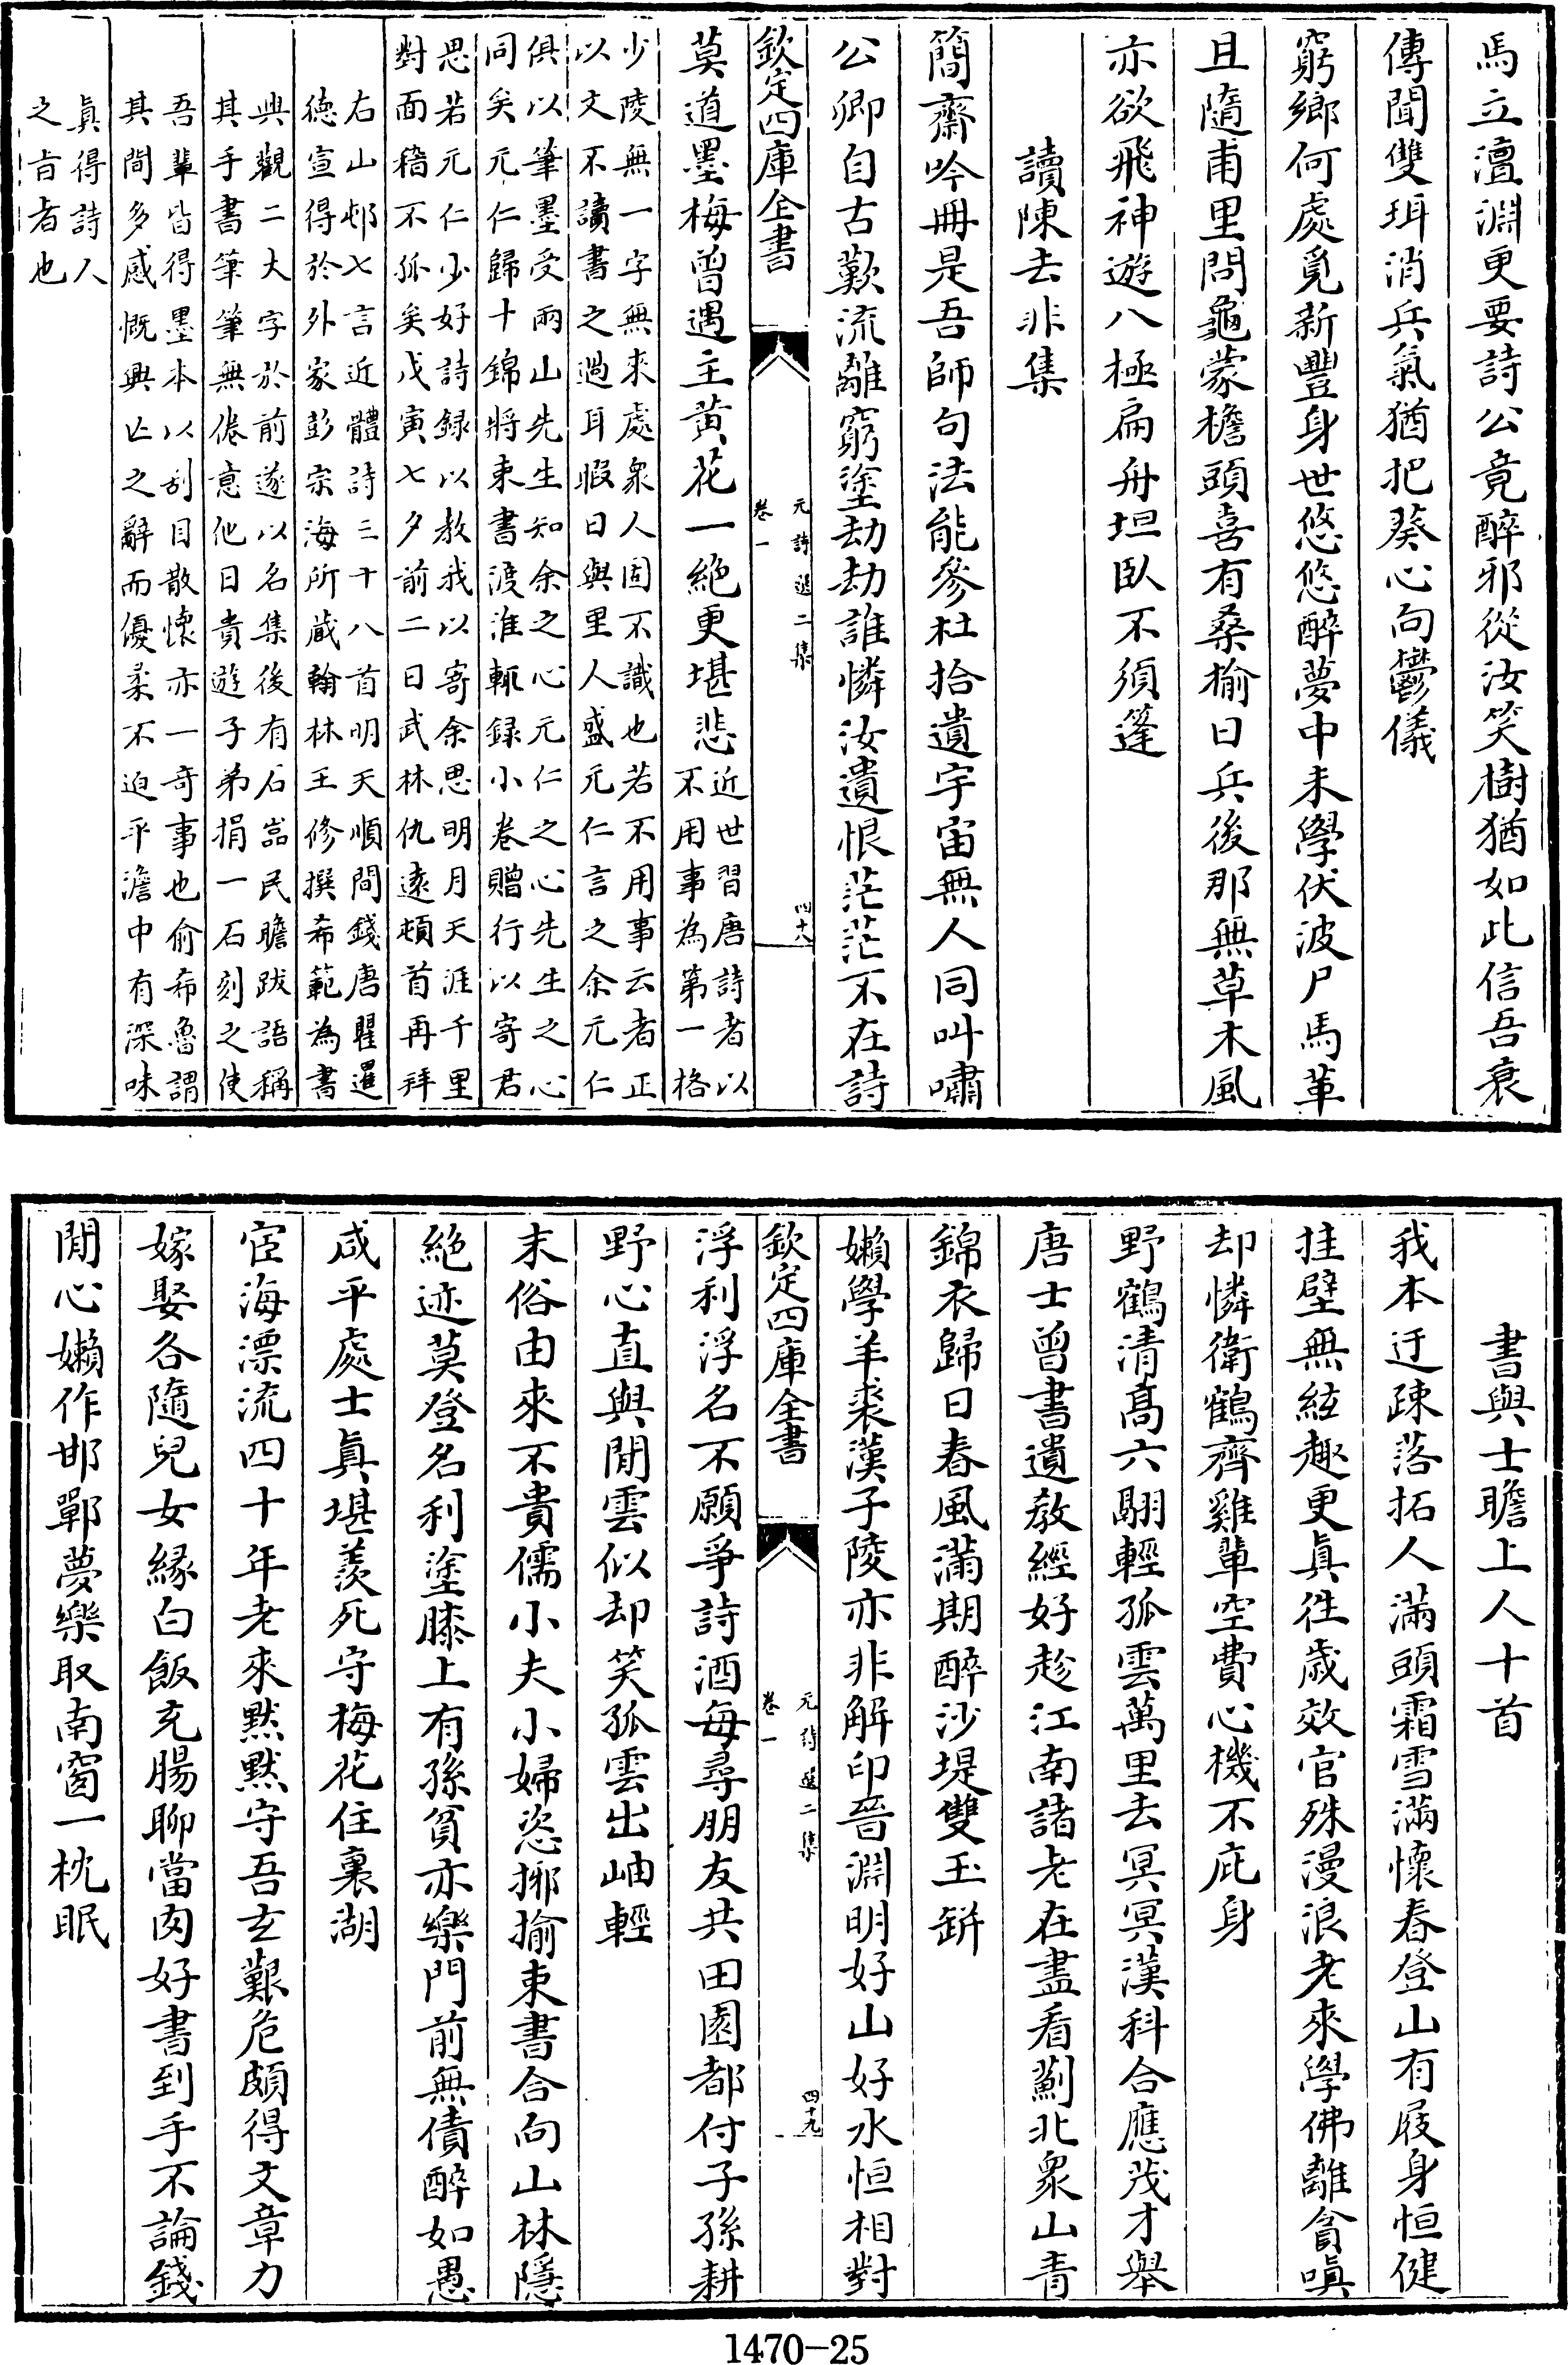 馬立澶淵更要詩公竟醉邪從汝笑樹猶如此信吾衰
傳聞雙珥消兵氣猶把葵心向鬱儀
窮鄉何處覓新豐身世悠悠醉夢中未學伏波尸馬革
且隨甫里問龜蒙檐頭喜有桑榆日兵後那無草木風
亦欲飛神遊八極扁舟坦臥不須篷
讀陳去非集
簡齋吟冊是吾師句法能參杜拾遺宇宙無人同叫嘯
公卿自古歎流離窮塗劫劫誰憐汝遺恨茫茫不在詩
欽定四庫全書
元詩選二集
卷一
四十八
莫道墨梅曾遇主黃花一絕更堪悲
近世習唐詩者以
不用事為第一格
少陵無一字無来處衆人固不識也若不用事云者正
以文不讀書之過耳暇日與里人盛元仁言之余元仁
俱以筆墨受兩山先生知余之心元仁之心先生之心
同矣元仁歸十錦將束書渡淮輒録小卷贈行以寄君
思若元仁少好詩録以教我以寄余思明月天涯千里
對面稽不孤矣戊寅七夕前二日武林仇遠頓首再拜
右山邨七言近體詩三十八首明天順間錢唐瞿暹
德宣得於外家彭宗海所蔵翰林王修撰希範為書
與觀二大字於前遂以名集後有石嵓民瞻跋語稱
其手書筆筆無倦意他日貴遊子弟捐一石刻之使
吾輩皆得墨本以刮目散懷亦一竒事也俞希魯謂
其間多感慨興亾之辭而優柔不迫平澹中有深味
真得詩人
之旨者也
書與士瞻上人十首
我本迂疎落拓人滿頭霜雪滿懷春登山有屐身恒健
挂壁無絃趣更真徃歲效官殊漫浪老來學佛離貪嗔
却憐衛鶴齊雞輩空費心機不庇身
野鶴清髙六翮輕孤雲萬里去冥冥漢科合應茂才舉
唐士曾書遺教經好趁江南諸老在盡看薊北衆山青
錦衣歸日春風滿期醉沙堤雙玉缾
嬾學羊裘漢子陵亦非解印晉淵明好山好水恒相對
欽定四庫全書
元詩選二集
卷一
四十九
浮利浮名不願爭詩酒每尋朋友共田園都付子孫耕
野心直與閒雲似却笑孤雲出岫輕
末俗由來不貴儒小夫小婦恣揶揄束書合向山林隱
絶迹莫登名利塗膝上有孫貧亦樂門前無債醉如愚
咸平處士真堪羨死守梅花住裏湖
宦海漂流四十年老來黙黙守吾𤣥艱危頗得文章力
嫁娶各隨兒女緣白飯充腸聊當肉好書到手不論錢
閒心嬾作邯鄲夢樂取南窗一枕眠
1470-25